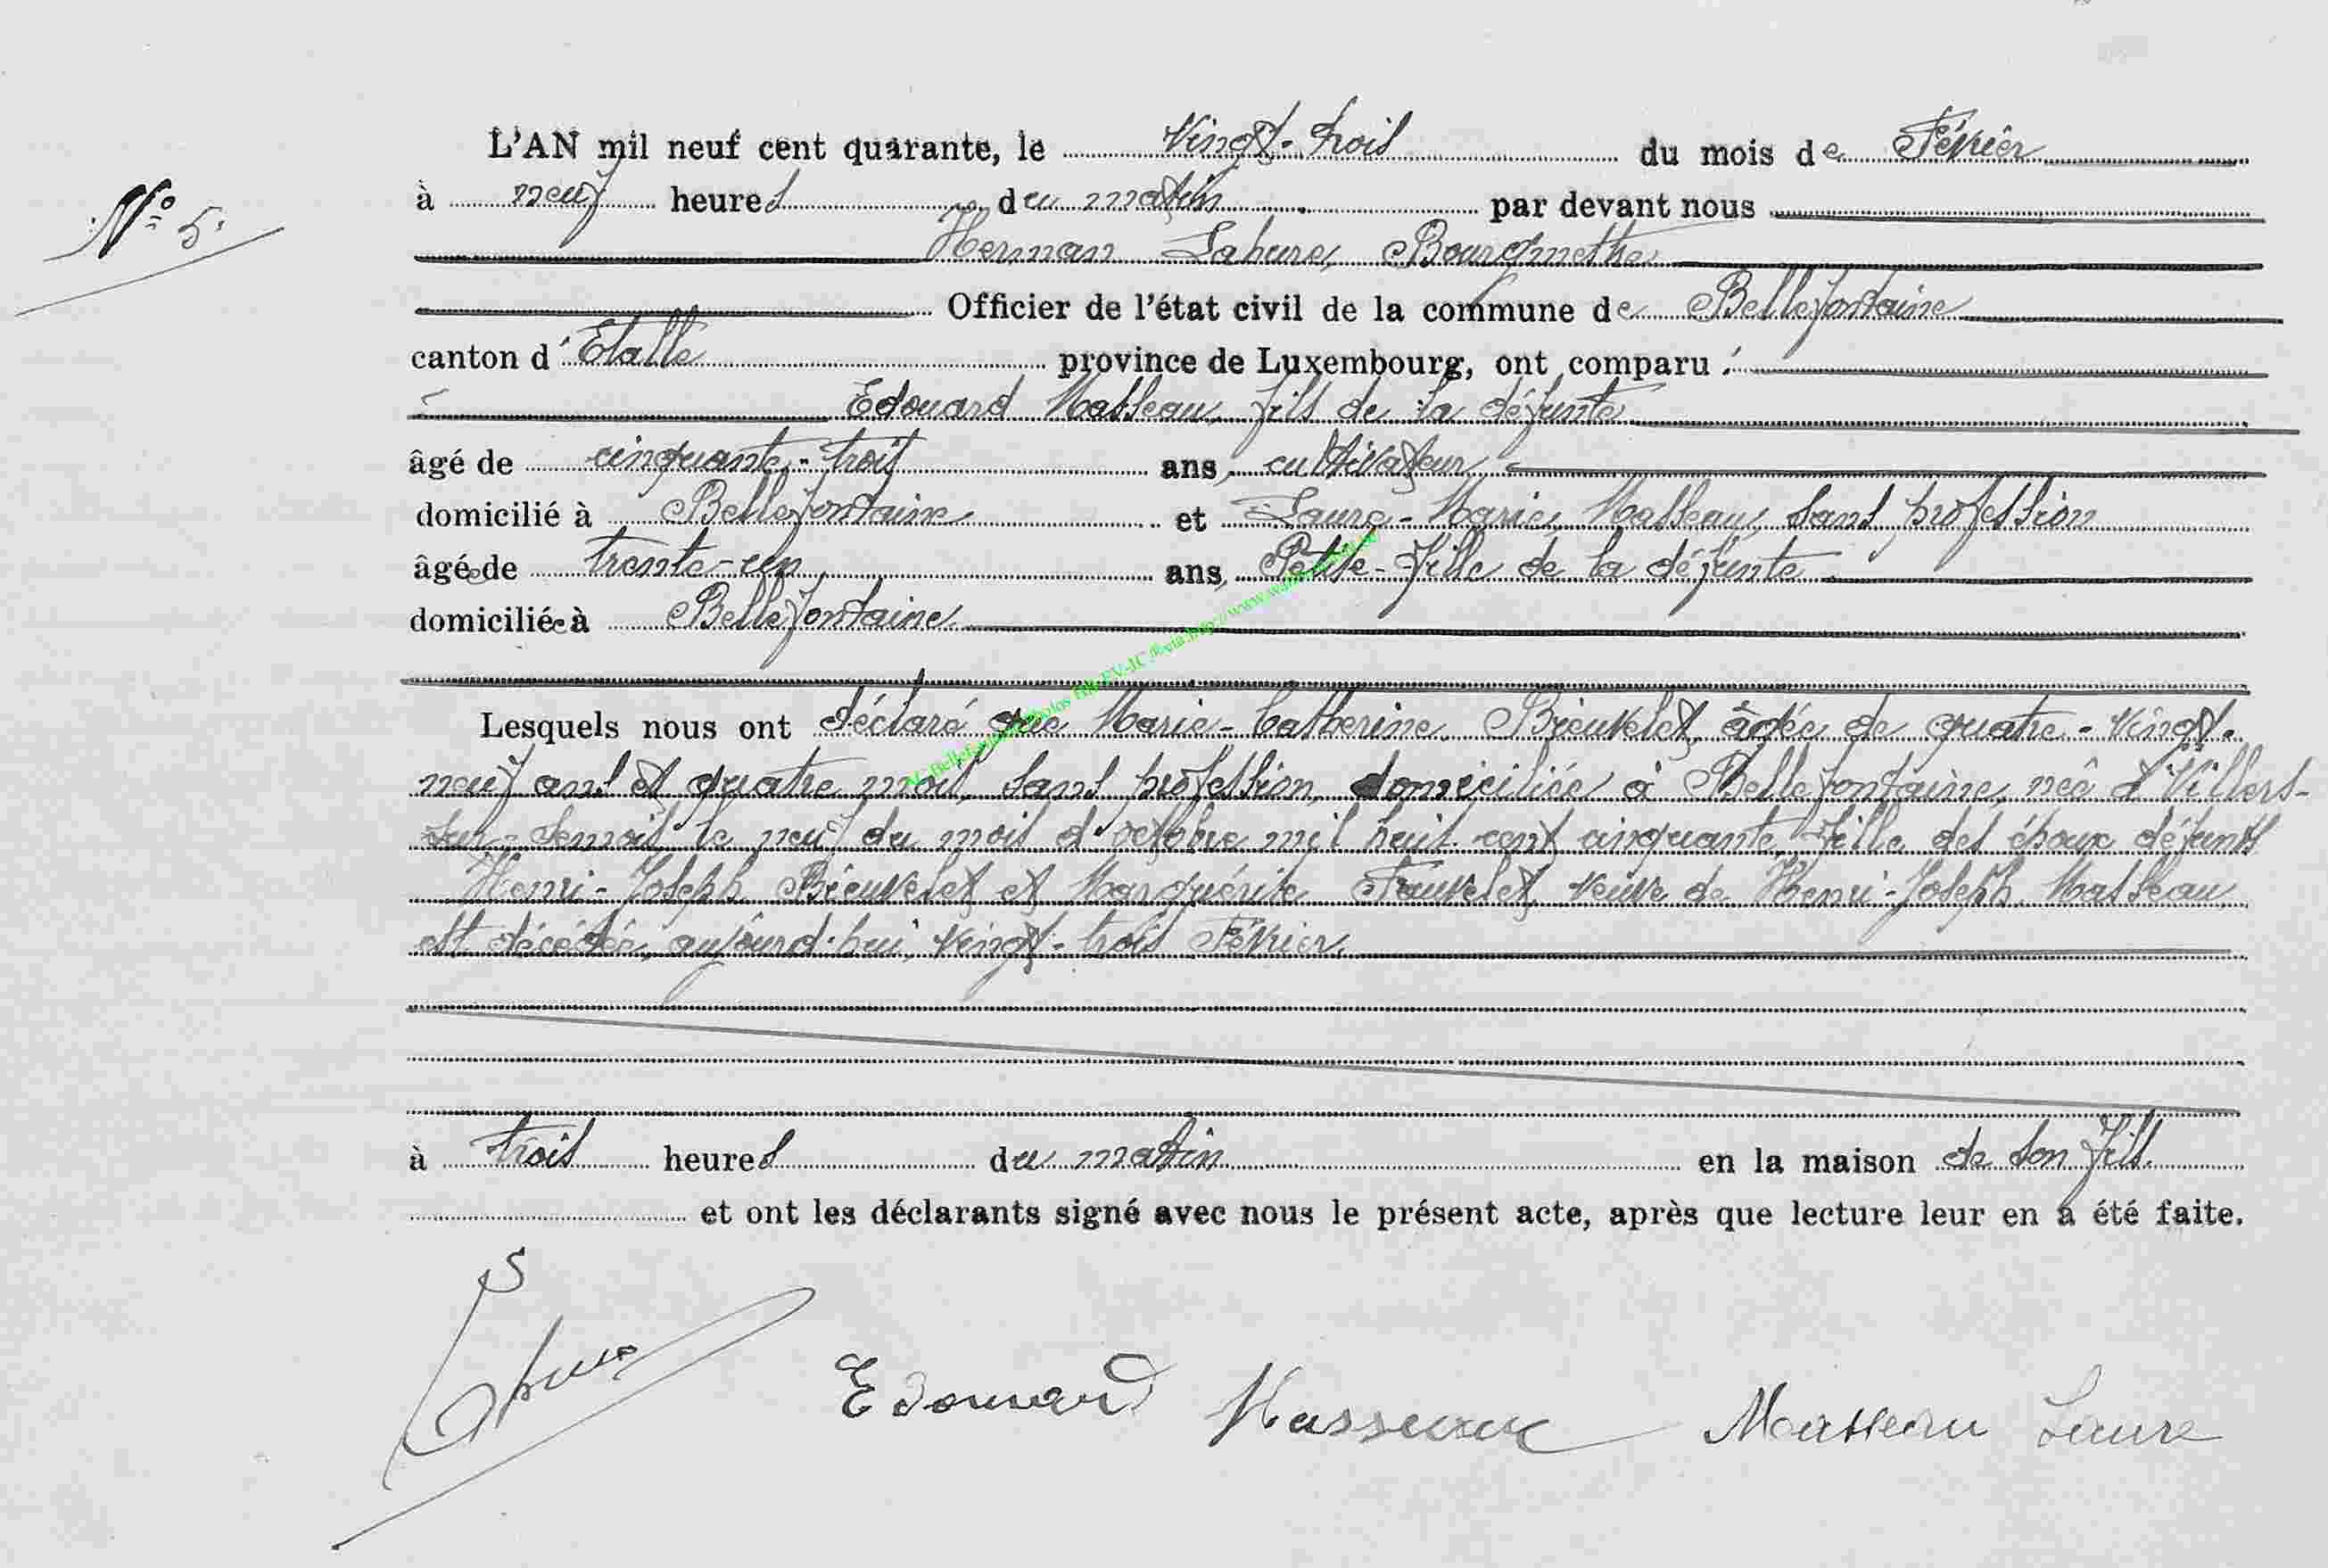 L'AN mil neuf cent quarante, le vingt-trois du mois de Février
N° 5.
à neuf heures du matin par devant nous
Herman Lahure, Bourgmestre
Officier de l'état civil de la commune de Bellefontaine
canton d'Etalle province de Luxembourg, ont comparu :
Edouard Masseau, fils de la défunte
âgé de cinquante-trois ans, cultivateur
domicilié à Bellefontaine et Laure-Marie Masseau, sans profession
âgée de trente-un ans, Petite-Fille de la défunte
domiciliée à Bellefontaine
Lesquels nous ont déclaré que Marie-Catherine Brieuvelet, âgée de quatre-vingt-
neuf ans et quatre mois, sans profession, domiciliée à Bellefontaine, née à Villers-
sur-Semois le neuf du mois d'octobre mil huit cent cinquante, Fille des époux défunts
Henri-Joseph Brieuvelet et Marguérite Fauvelet, veuve de Henri-Joseph Masseau
est décédée, aujourd'hui, vingt-trois Février,
à trois heures du matin en la maison de son fils.
et ont les déclarants signé avec nous le présent acte, après que lecture leur en a été faite.
Edouard Masseaux Masseau Laure